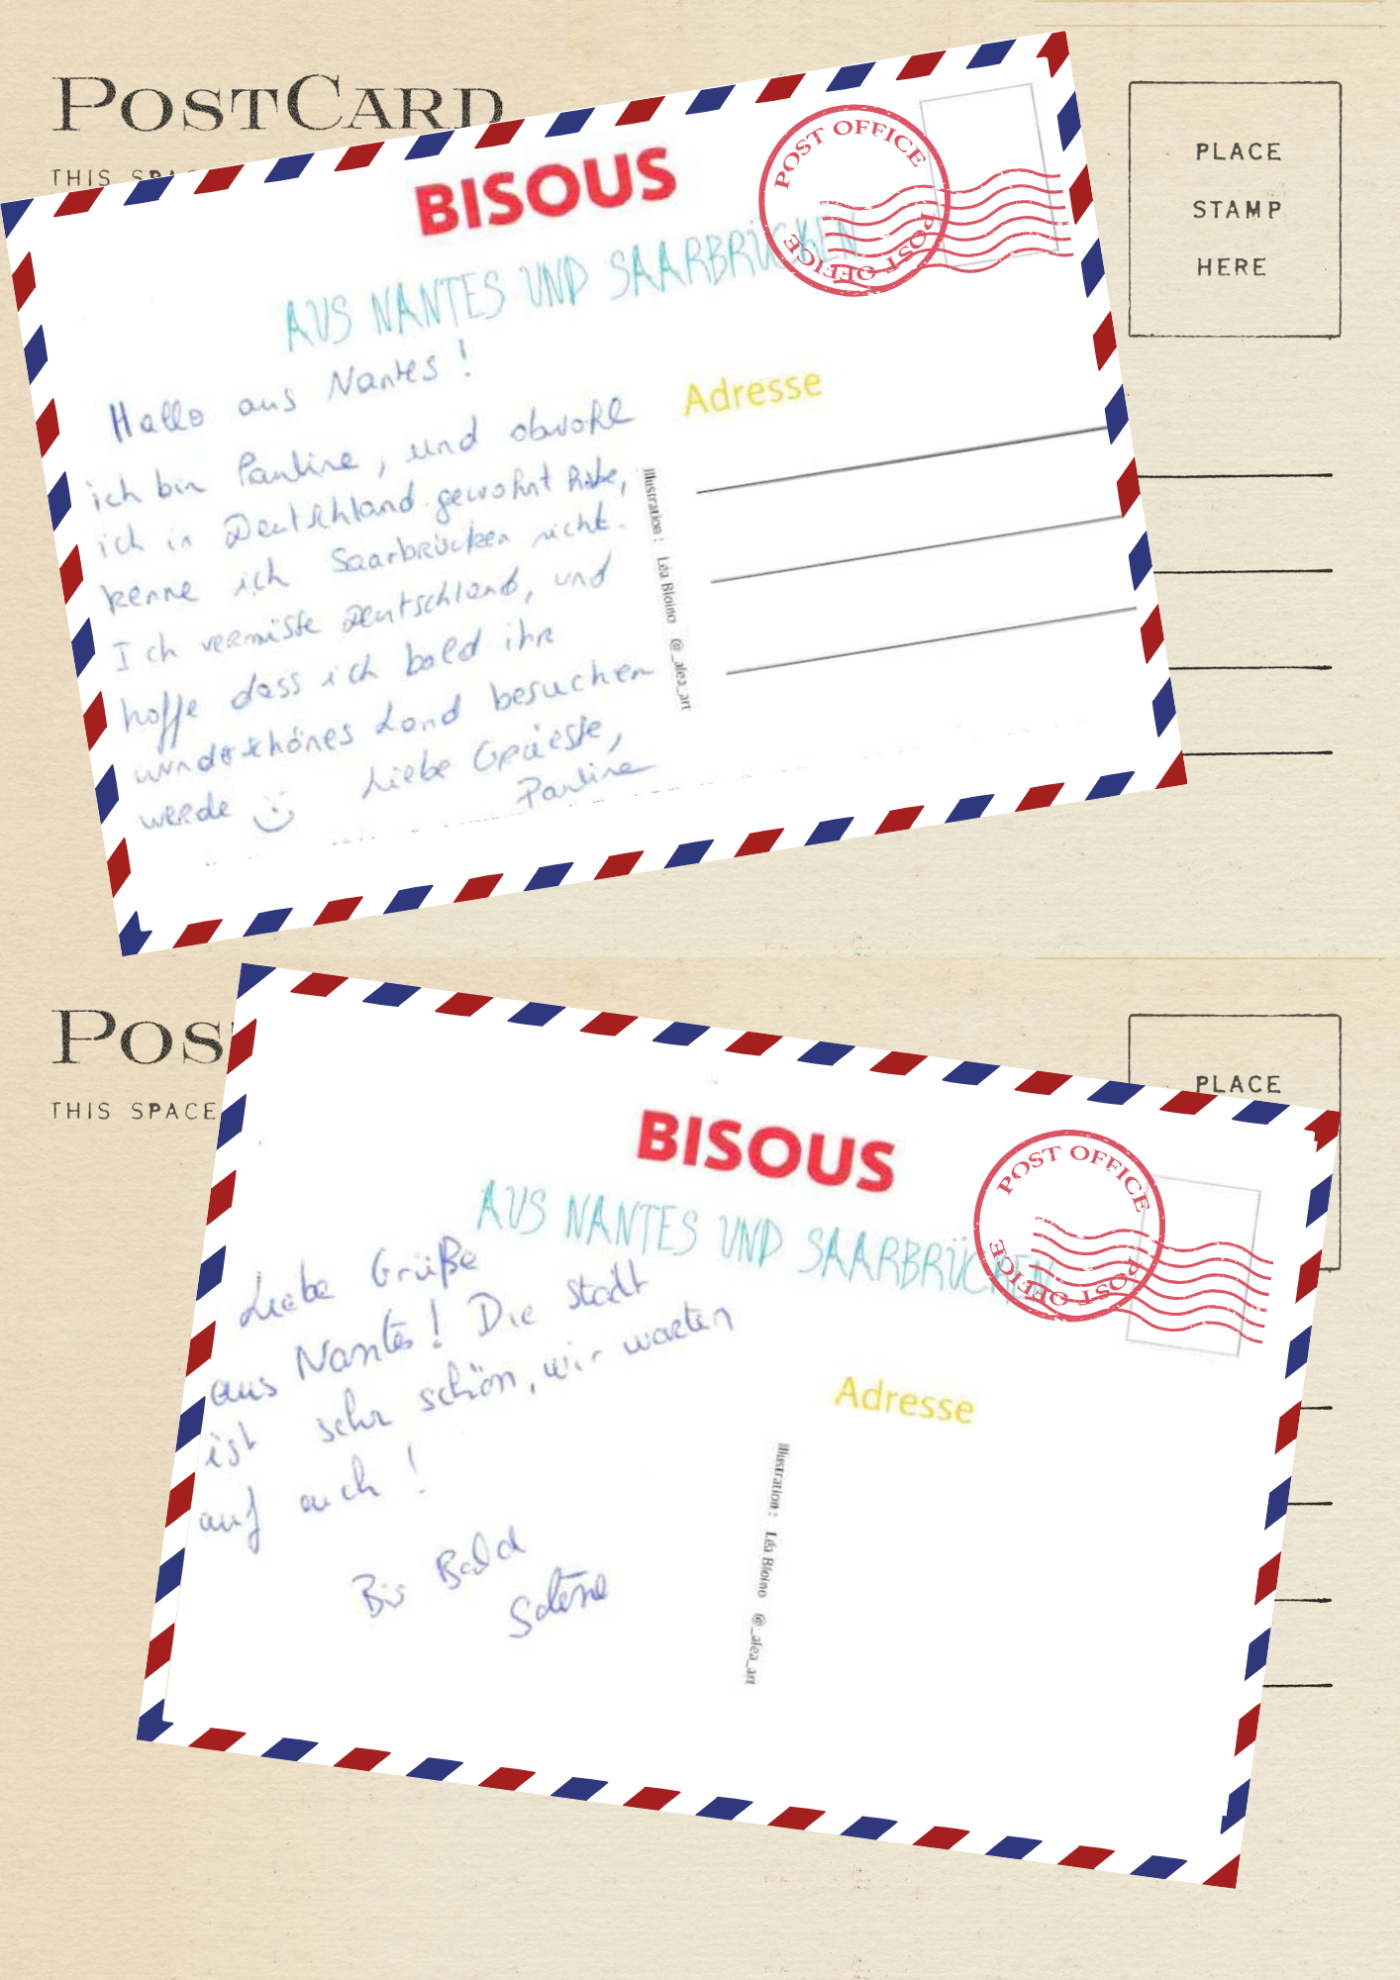 POSTCARD
THIS SPA
PLACE
STAMP
HERE
BISOUS
AUS NANTES UND SAARBRÜCKEN
POST OFFICE
POST OFFICE
Hallo aus Nantes !
ich bin Pauline, und obwohl
ich in Deutschland gewohnt habe,
kenne ich Saarbrücken nicht.
Ich vermisse Deutschland, und
hoffe dass ich bald ihr
wunderschönes Land besuchen
werde
Liebe Grüesse,
Pauline
Adresse
Illustration : Léa Bloino @_alea_art
POS
THIS SPACE
PLACE
BISOUS
AUS NANTES UND SAARBRÜCKEN
POST OFFICE
POST OFFICE
Liebe Grüße
aus Nantes! Die Stadt
ist sehr schön, wir warten
auf euch !
Bis Bald
Solène
Adresse
Illustration : Léa Bloino @_alea_art